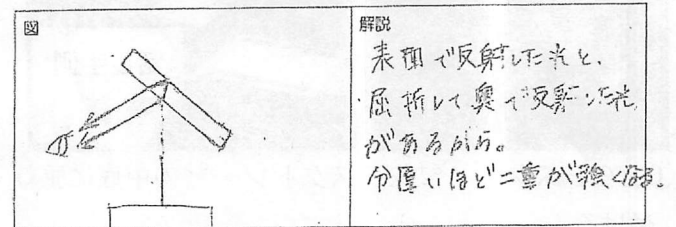 図
解説
表面で反射した光と、
屈折して奥で反射した光
があるから。
分厚いほど二重が強くなる。